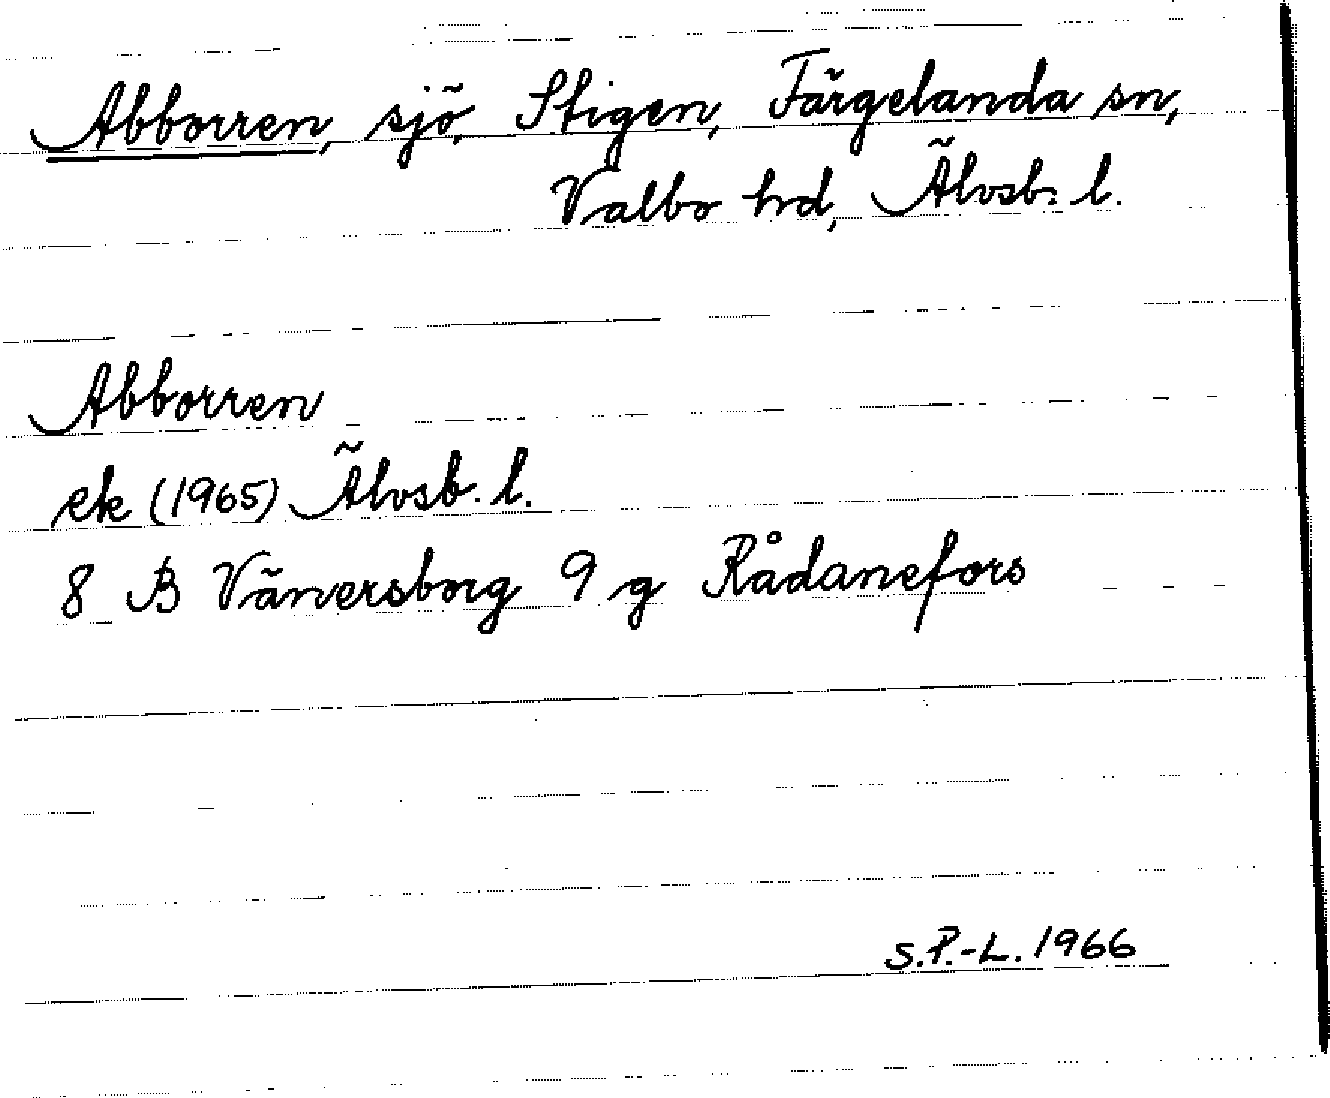 Abborren, sjö, Stigen, Färgelanda sn,
Valbo hd, Älvsb. l.
Abborren
ek (1965) Älvsb. l.
8 B Vänersborg 9 g Rådanefors
S.P.-L. 1966